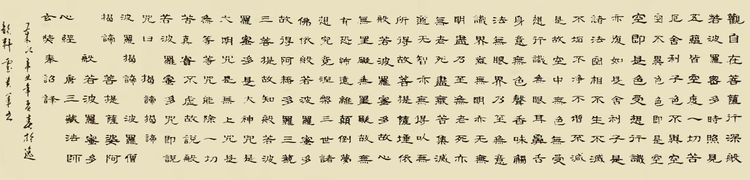 觀自在菩薩行深般
若波羅蜜多時照見
五蘊皆空度一切苦
厄舍利子色不異空
空不異色色即是空
空即是色受想行識
亦復如是舍利子是
諸法空相不生不滅
不垢不淨不增不減
是故空中無色無受
想行識無眼耳鼻舌
身意無色聲香味觸
法無眼界乃至無意
識界無無明亦無無
明盡乃至無老死亦
無老死盡無苦集滅
道無智亦無得以無
所得故菩提薩埵依
般若波羅蜜多故心
無罣礙無罣礙故無
有恐怖遠離顛倒夢
想究竟涅槃三世諸
佛依般若波羅蜜多
故得阿耨多羅三藐
三菩提故知般若波
羅蜜多是大神咒是
大明咒是無上咒是
無等等咒能除一切
苦真實不虛故說般
若波羅蜜多咒即說
咒曰 揭諦 揭諦
波羅揭諦 波羅僧
揭諦 菩提薩婆阿
般若波羅蜜多
心經 唐三藏法師
玄奘奉詔譯